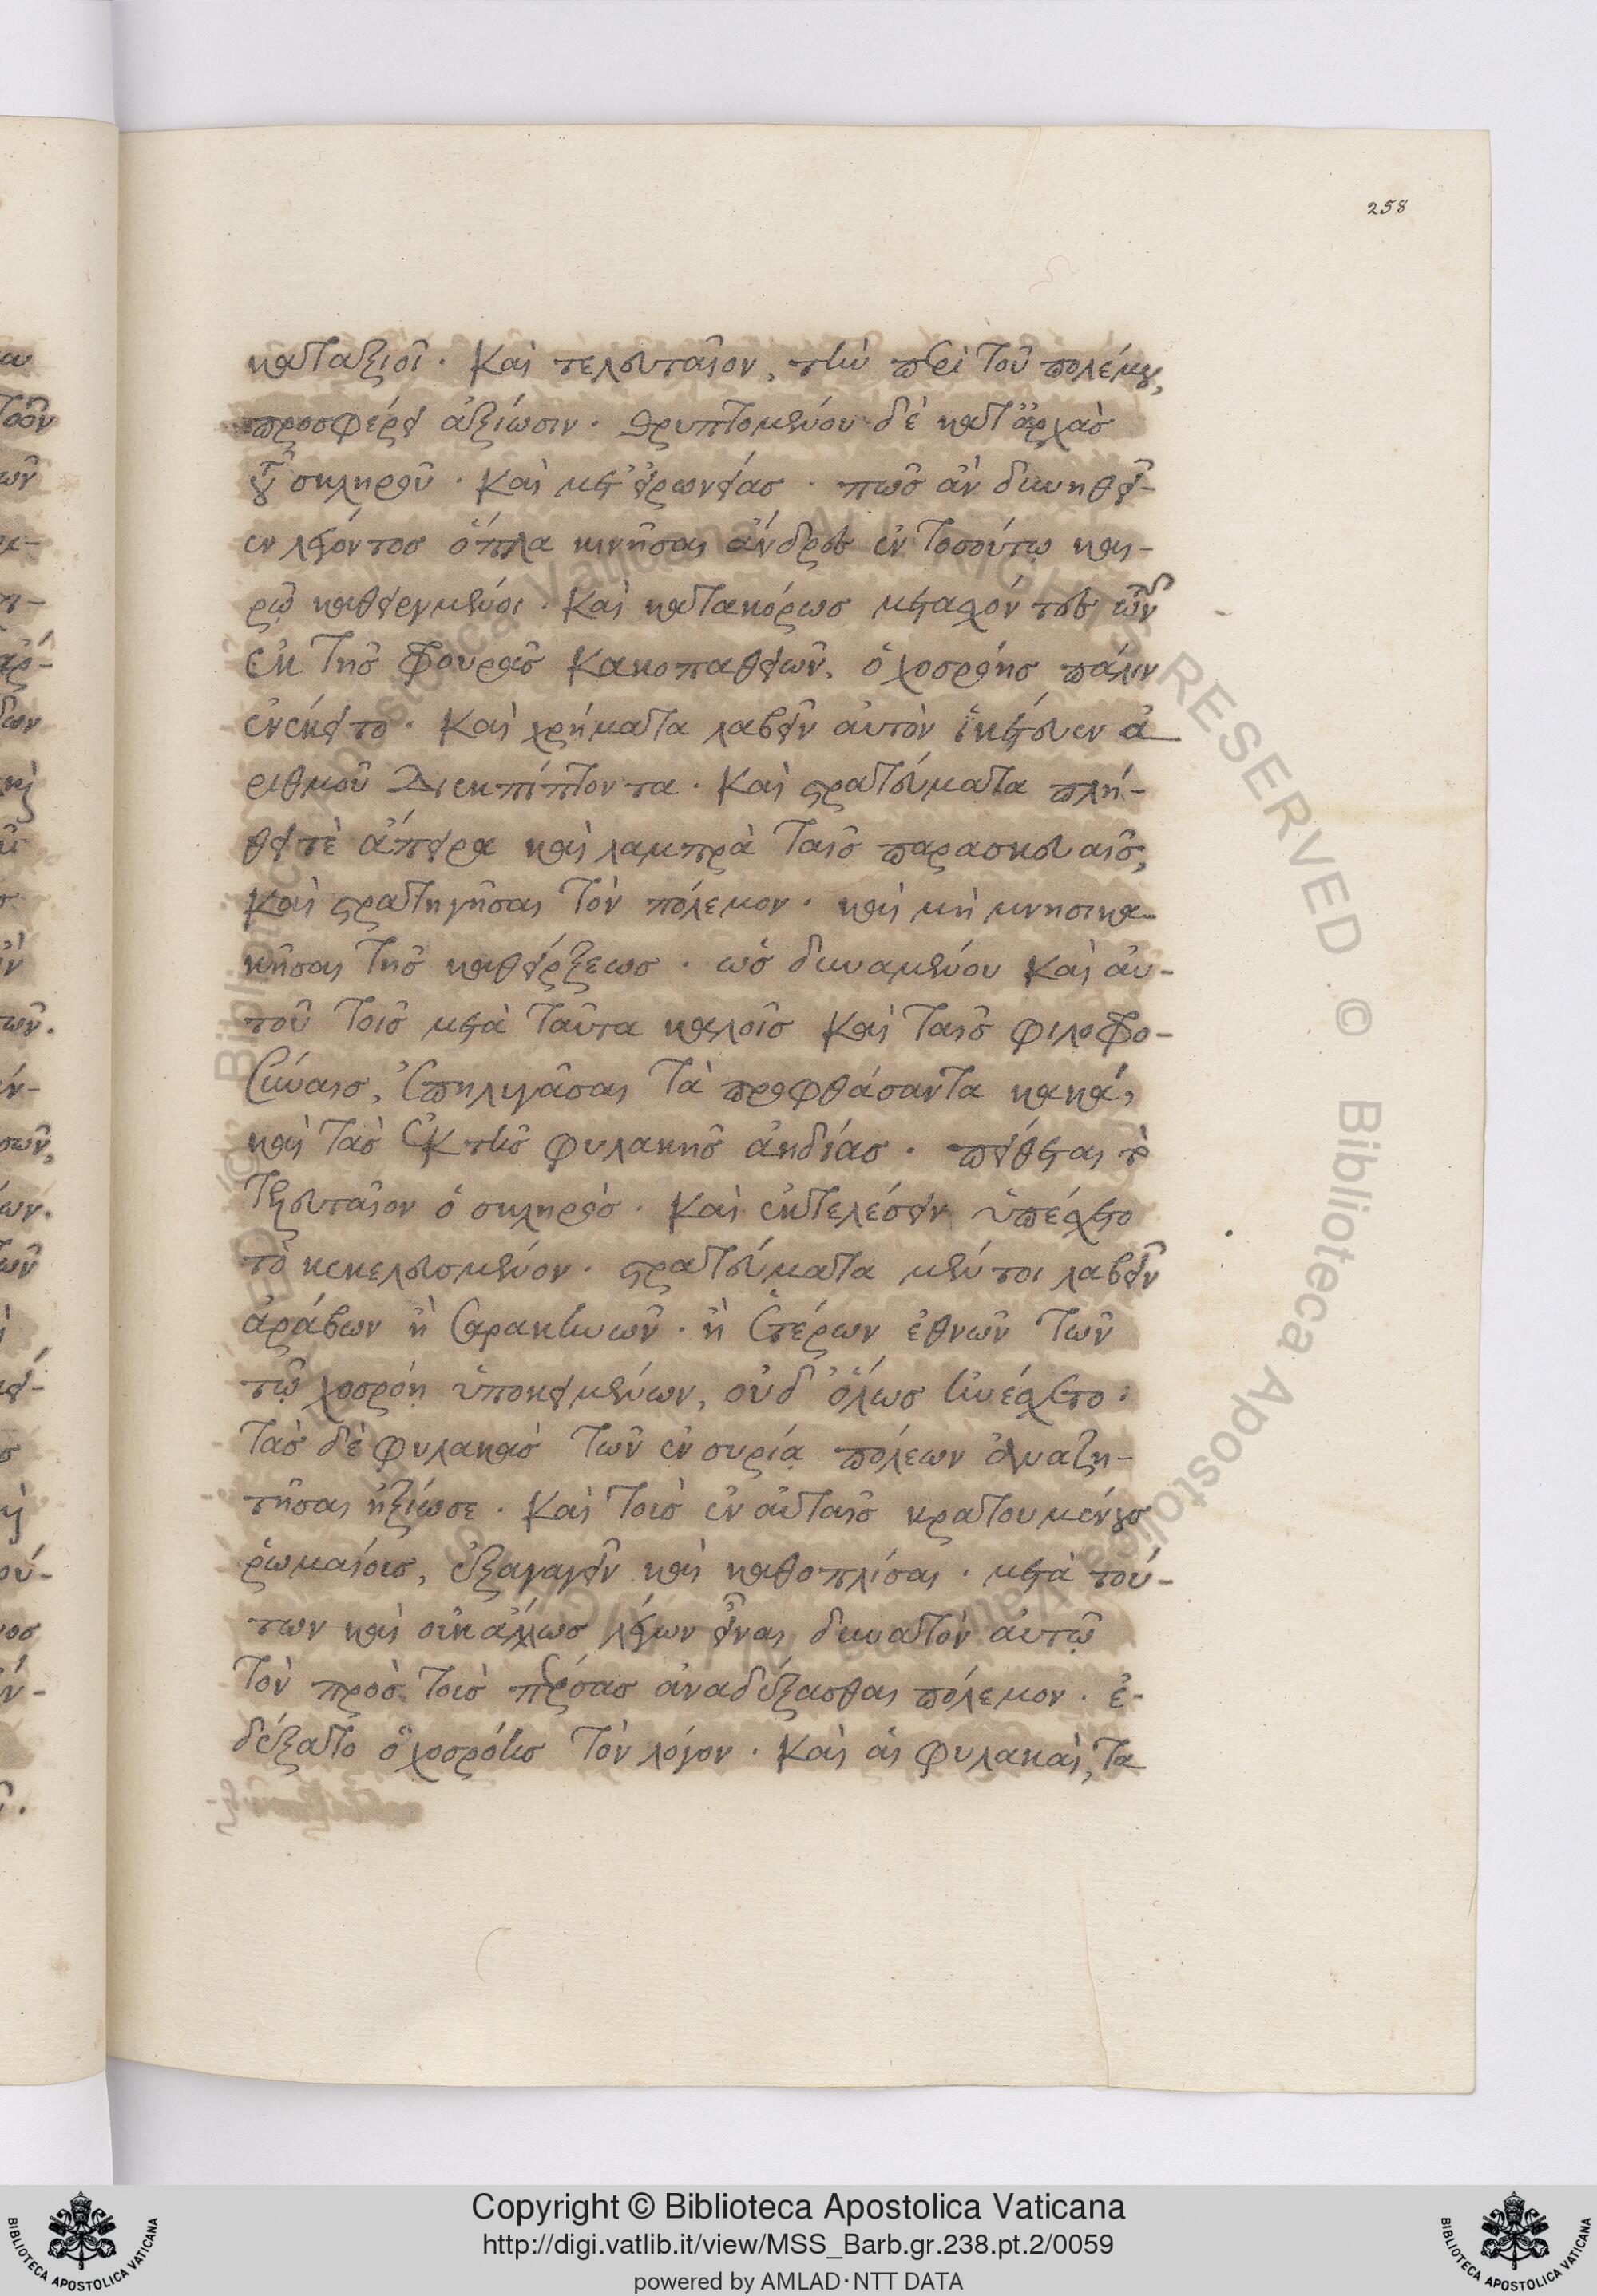 258
καταξιοῖ. καὶ τελευταῖον, τὴν περὶ τοῦ πολέμου,
προσφέρει ἀξίωσιν. θρυπτομένου δὲ κατ' ἀρχὰς
τοῦ σκληροῦ. καὶ μετ' εἰρωνείας. πῶς ἂν δυνηθεῖ-
εν λέγοντος ὅπλα κινῆσαι ἄνδρες ἐν τοσούτῳ και-
ρῷ καθειργμένοι. καὶ κατακόρως μετασχόντες τῶν
ἐκ τῆς φρουρᾶς κακοπαθειῶν. ὁ χοσρόης πάλιν
ἐνέκειτο. καὶ χρήματα λαβεῖν αὐτὸν ἱκέτευεν ἀ
ριθμοῦ διεκπίπτοντα. καὶ στρατεύματα πλή-
θει τὲ ἄπειρα καὶ λαμπρὰ ταῖς παρασκευαῖς,
καὶ στρατηγῆσαι τὸν πόλεμον. καὶ μὴ μνησικα-
κῆσαι τῆς καθείρξεως. ὡς δυναμένου καὶ αὐ-
τοῦ τοῖς μετὰ ταῦτα καλοῖς καὶ ταῖς φιλοφρο-
σύναις, ἐπηλυγάσαι τὰ προφθάσαντα κακά,
καὶ τὰς ἐκ τῆς φυλακῆς ἀηδίας. πείθεται τὸ
τελευταῖον ὁ σκληρὸς. καὶ ἐκτελέσειν ὑπέσχετο
τὸ κεκελευσμένον. στρατεύματα μέντοι λαβεῖν
ἀράβων ἢ σαρακηνῶν. ἢ ἑτέρων ἐθνῶν τῶν
τῷ χοσρόῃ ὑποκειμένων, οὐδ' ὅλως ἠνέσχετο:
τὰς δὲ φυλακὰς τῶν ἐν συρίᾳ πόλεων ἀναζη-
τῆσαι ἠξίωσε. καὶ τοὺς ἐν αὐταῖς κρατουμένους
ῥωμαίους, ἐξαγαγεῖν καὶ καθοπλίσαι. μετὰ τού-
των καὶ οὐκ ἄλλως λέγων εἶναι δυνατὸν αὐτῷ
τὸν πρὸς τοὺς πέρσας ἀναδέξασθαι πόλεμον. ἐ-
δέξατο ὁ χοσρόης τὸν λόγον. καὶ αἱ φυλακαὶ, τα
Copyright © Biblioteca Apostolica Vaticana
http://digi.vatlib.it/view/MSS_Barb.gr.238.pt.2/0059
powered by AMLAD·NTT DATA